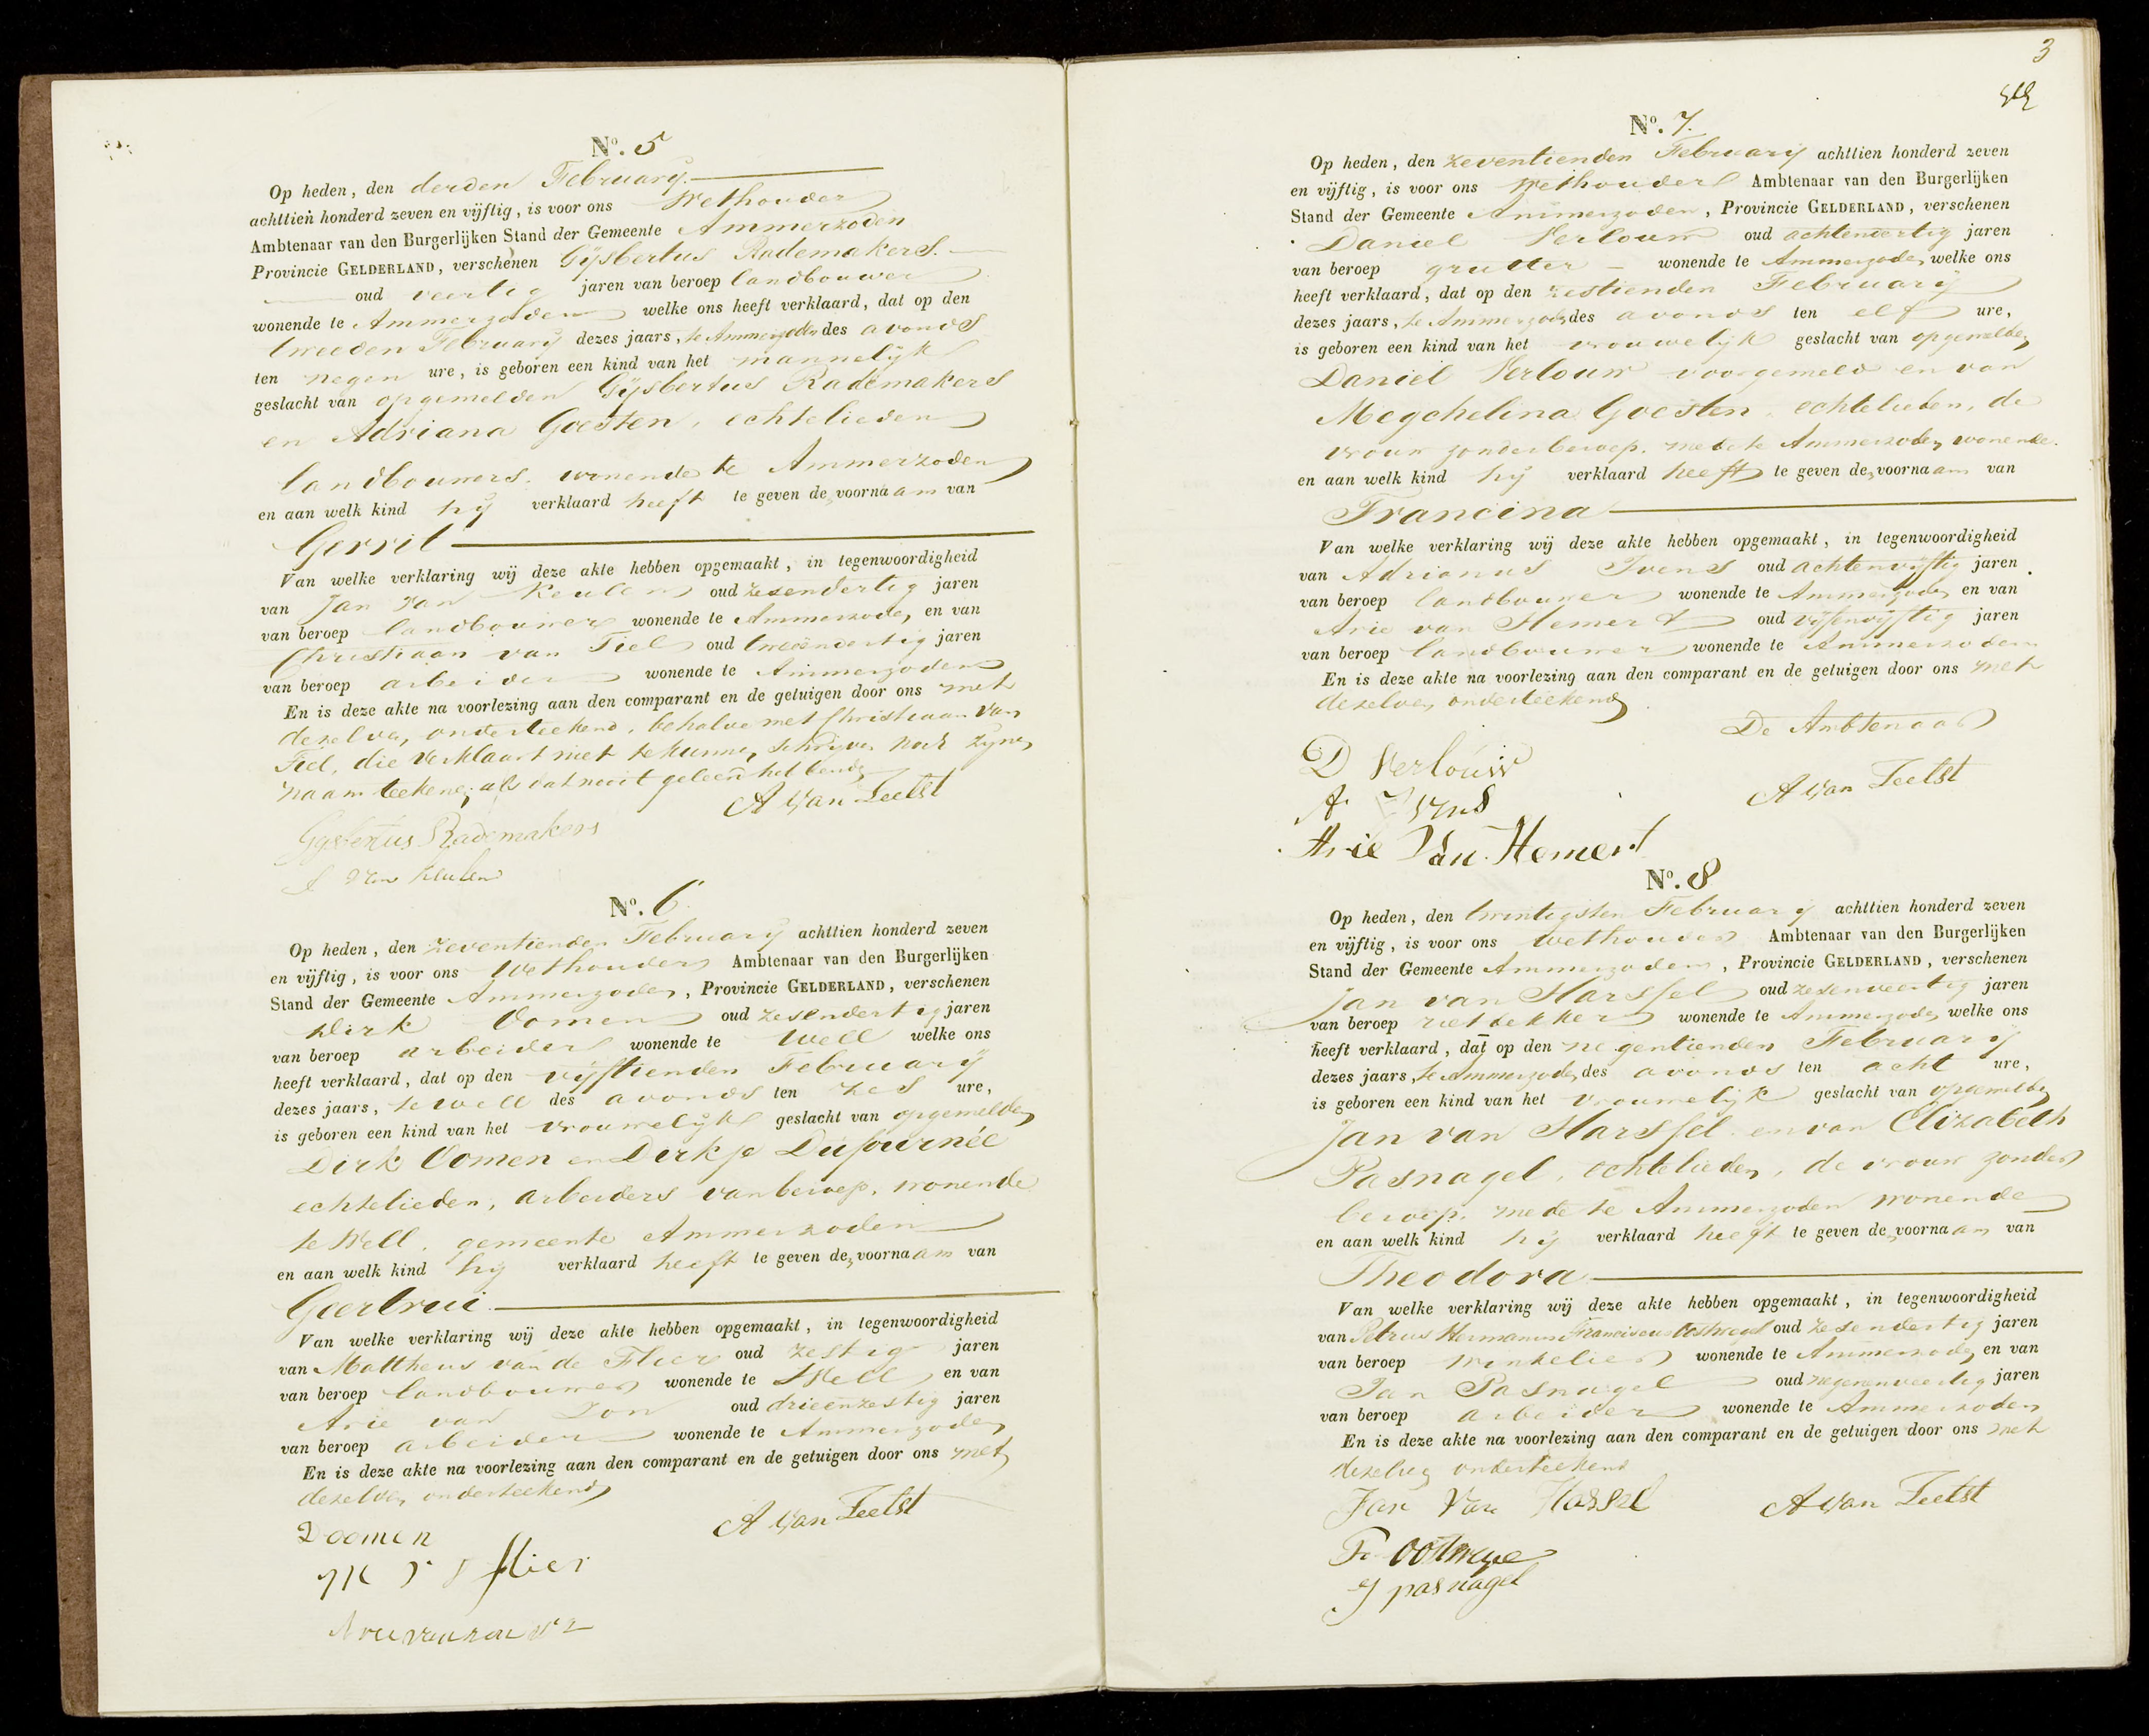 Nº. 5
Op heden, den derden February.
achttien honderd zeven en vijftig, is voor ons Wethouder
Ambtenaar van den Burgerlijken Stand der Gemeente Ammerzoden
Provincie GELDERLAND, verschenen Gijsbertus Rademakers.
oud veertig jaren van beroep landbouwer
wonende te Ammerzoden welke ons heeft verklaard, dat op den
tweeden February dezes jaars, te Ammerzoden des avonds
ten negen ure, is geboren een kind van het mannelijk
geslacht van opgemelden Gijsbertus Rademakers
en Adriana Goesten, echtelieden
landbouwers, wonende te Ammerzoden
en aan welk kind hij verklaard heeft te geven de voornaam van
Gerrit
Van welke verklaring wij deze akte hebben opgemaakt, in tegenwoordigheid
van Jan van Keulen oud zesendertig jaren
van beroep landbouwer wonende te Ammerzoden, en van
Christiaan van Tiel oud tweeëndertig jaren
van beroep arbeider wonende te Ammerzoden
En is deze akte na voorlezing aan den comparant en de getuigen door ons met
dezelven onderteekend, behalve met Christiaan van
Tiel, die verklaart niet te kunnen schrijven noch zijnen
naam teekenen, als dat nooit geleerd hebbende
A Van Zeelst
Gysbertus Rademakers
J van keulen
Nº. 6.
Op heden, den zeventienden February achttien honderd zeven
en vijftig, is voor ons Wethouder Ambtenaar van den Burgerlijken
Stand der Gemeente Ammerzoden, Provincie GELDERLAND, verschenen
Dirk Oomen oud zesendertig jaren
van beroep arbeider wonende te Well welke ons
heeft verklaard, dat op den vijftienden February
dezes jaars, te Well des avonds ten zes ure,
is geboren een kind van het vrouwelijk geslacht van opgemelden
Dirk Oomen en Dirkje Dufournée
echtelieden, arbeiders van beroep, wonende
te Well, gemeente Ammerzoden
en aan welk kind hij verklaard heeft te geven de voornaam van
Geertrui
Van welke verklaring wij deze akte hebben opgemaakt, in tegenwoordigheid
van Mattheus van de Flier oud zestig jaren
van beroep landbouwer wonende te Well en van
Arie van Zon oud drieënzestig jaren
van beroep arbeider wonende te Ammerzoden
En is deze akte na voorlezing aan den comparant en de getuigen door ons met
dezelven onderteekend
A Van Zeelst
D oomen
M V D flier
3
Nº. 7.
Op heden, den zeventienden February achttien honderd zeven
en vijftig, is voor ons Wethouder Ambtenaar van den Burgerlijken
Stand der Gemeente Ammerzoden, Provincie GELDERLAND, verschenen
Daniel Verlouw oud achtenveertig jaren
van beroep grutter wonende te Ammerzoden welke ons
heeft verklaard, dat op den zestienden February
dezes jaars, te Ammerzoden des avonds ten elf ure,
is geboren een kind van het vrouwelijk geslacht van opgemelden
Daniel Verlouw voorgemeld en van
Megchelina Goesten, echtelieden, de
vrouw zonder beroep, mede te Ammerzoden wonende.
en aan welk kind hij verklaard heeft te geven de voornaam van
Francina
Van welke verklaring wij deze akte hebben opgemaakt, in tegenwoordigheid
van Adrianus Ivens oud achtenvijftig jaren
van beroep landbouwer wonende te Ammerzoden en van
Arie van Hemert oud vijfenvijftig jaren
van beroep landbouwer wonende te Ammerzoden
En is deze akte na voorlezing aan den comparant en de getuigen door ons met
dezelven onderteekend
De Ambtenaar
D Verlouw
A Van Zeelst
A. Ivens
Arie Van Hemert
Nº. 8
Op heden, den twintigsten February achttien honderd zeven
en vijftig, is voor ons Wethouder Ambtenaar van den Burgerlijken
Stand der Gemeente Ammerzoden, Provincie GELDERLAND, verschenen
Jan van Harssel oud zesenveertig jaren
van beroep rietdekker wonende te Ammerzoden welke ons
heeft verklaard, dat op den negentienden February
dezes jaars, te Ammerzoden des avonds ten acht ure,
is geboren een kind van het vrouwelijk geslacht van opgemelden
Jan van Harssel en van Elizabeth
Pasnagel, echtelieden, de vrouw zonder
beroep, mede te Ammerzoden wonende
en aan welk kind hij verklaard heeft te geven de voornaam van
Theodora
Van welke verklaring wij deze akte hebben opgemaakt, in tegenwoordigheid
van Petrus Hermanus Franciscus Oostwegel oud zesendertig jaren
van beroep winkelier wonende te Ammerzoden en van
Jan Pasnagel oud negenenveertig jaren
van beroep arbeider wonende te Ammerzoden
En is deze akte na voorlezing aan den comparant en de getuigen door ons met
dezelven onderteekend
Jan Van Hassel
A Van Zeelst
J pasnagel